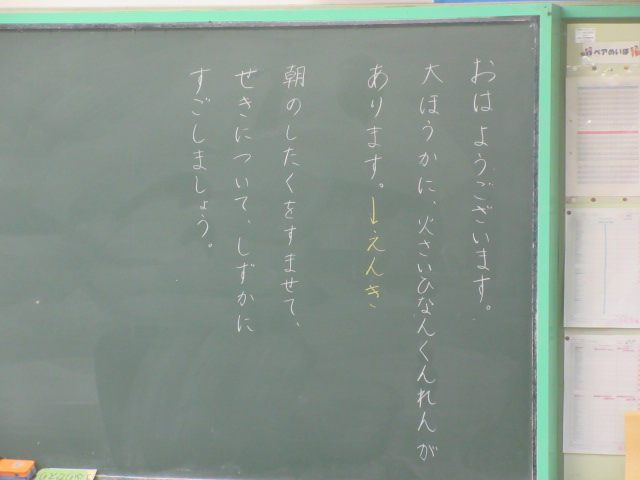 おはようございます。
大ほうかに、火さいひなんくんれんが
あります。→えんき
朝のしたくをすませて、
せきについて、しずかに
すごしましょう。